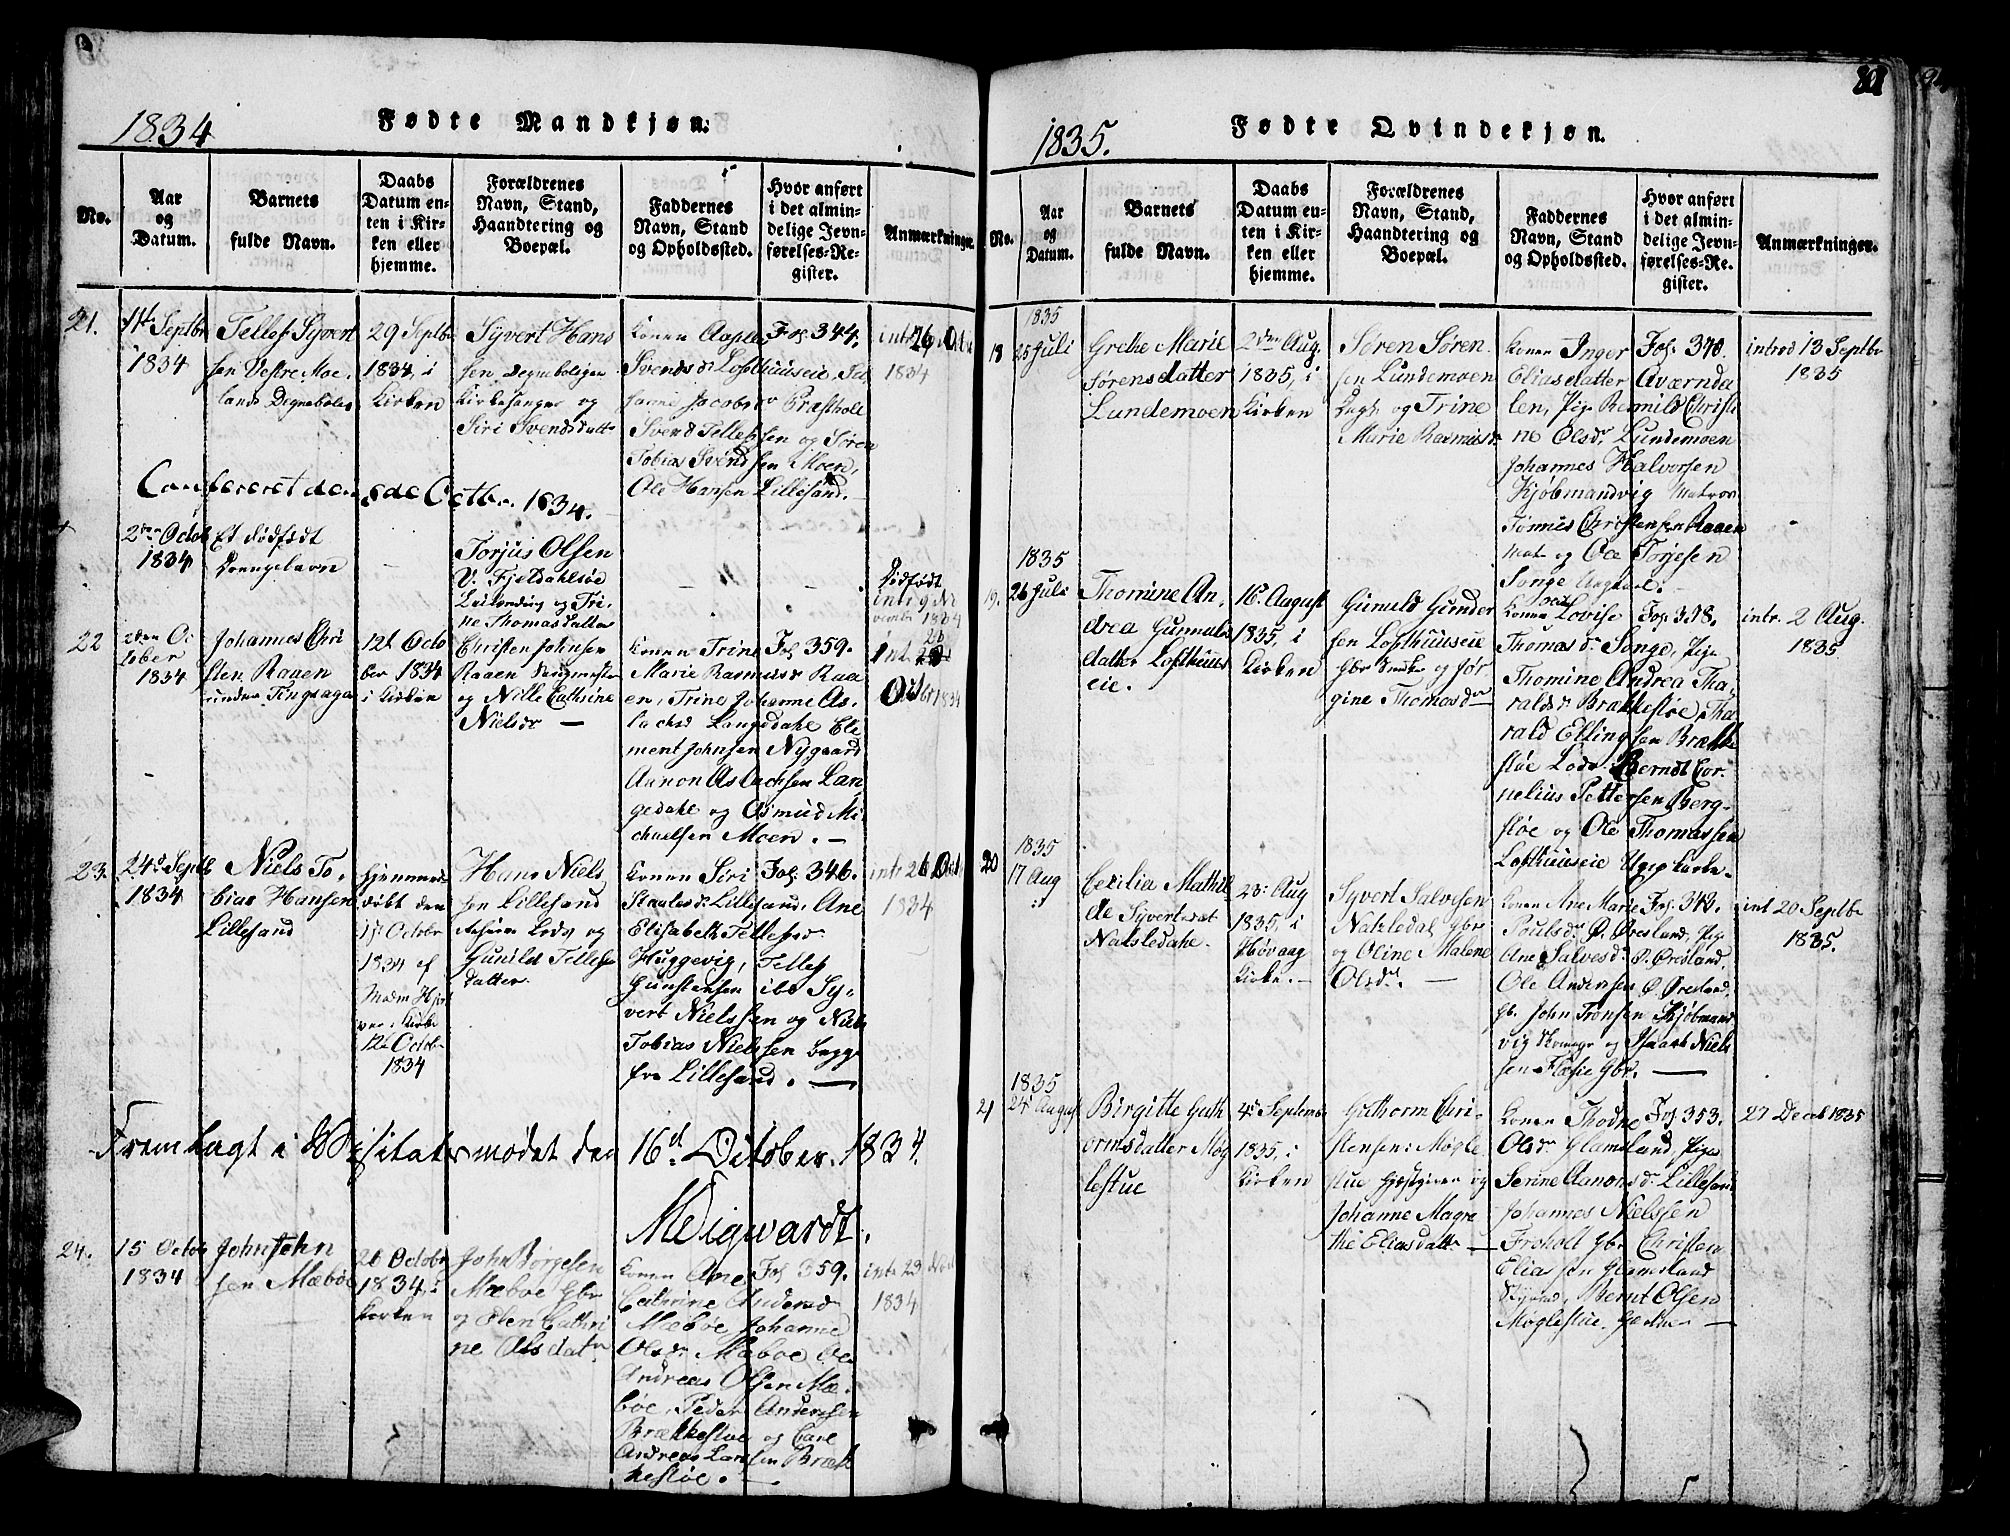 1834
Fødte Mandkjøn.
No.
Aar
og
Datum.
Barnets
fulde Navn.
Daabs
Datum en-
ten i Kir-
ken eller
hjemme.
Forældrenes
Navn, Stand,
Haandtering og
Boepæl.
Faddernes
Navn, Stand
og Opholdssted.
Hvor anført
i det almin-
delige Jevn-
førelses-Re-
gister.
Anmærkninger.
21.
11t Septbr
1834
Tellef Syvert
sen Vestre Moe-
lands Degnebolig
29 Septbr
1834, i
Kirken
Syvert Hans
sen Degneboligen
Kirkesanger og
Siri Svendsdatter
Konen
Svendsdr Lofthuuseie
Jacobs
Svend Tellefssen og Søren
Tobias Svendsen Moen,
Ole Hansen Lillesand.
Fol. 344.
intr 26 Octbr
1834
Confereret den 8de Octbr. 1834.
2den Octob
1834
Et dødfødt
Drengebarn
Torjus Olsen
V. Fjeldahlsøe
og Tri-
ne Thomasdatter
Dødfødt
intr 9 No
vembr 1834
22
2den Oc
tober
1834
Johannes Chri
sten Raaen
under Tingsager
12t Octo
ber 1834
i Kirken
Christen Johnsen
Raaen
og Nille Cathrine
Nielsdr —
Konen Trine
Marie Rasmusdr Raa
en, Trine Johanne As-
lachsd Langedahl Cle
ment Johnsen Nygaard
Aanon Aslachsen Lan
gedahl og Osmund Mi
chaelsen Moen. —
Fol 359.
int 26
Octbr 1834
23.
24d Septb
1834
Niels To-
bias Hansen
Lillesand
hjemme-
døbt den
1st Octobr
1834 af
Madm
i Kirke
12t Octob
1834
Hans Niels
sen Lillesand
Lods og
Gunild Tellefs
datter
Konen Siri
Lillesand, Ane
Elisabeth Tellefsdr
Huggevig, Tellef
Gunstensen ibd Sy-
vert Nielssen og Niels
Tobias Nielssen begge
fra Lillesand. —
Fol 346.
intr 26 Oct
1834
Fremlagt i Visitatsmødet den 16d October 1834.
24.
15 Octob
1834
John John
sen Mæbøe
26 Octobr
1834, i
Kirken
John Børgesen
Mæbøe Gbr
og Elen Cathri
ne Olsdatr
Konen Ane
Cathrine Andersd
Mæbøe, Johanne
Olsdr Mæbøe Ole
Andreas Olsen Mæ-
bøe, Peder Andersen
Brækkestøe og Carl
Andreas Larssen Bræk
kestøe. —
Fol 359.
intr 23 Nov
1834
1835.
Fødte Qvindekjøn.
No.
Aar
og
Datum.
Barnets
fulde Navn.
Daabs
Datum en-
ten i Kir-
ken eller
hjemme.
Forældrenes
Navn, Stand,
Haandtering og
Boepæl.
Faddernes
Navn, Stand
og Opholdssted.
Hvor anført
i det almin-
delige Jevn-
førelses-Re-
gister.
Anmærkninger.
18
1835
25 Juli
Grethe Marie
Sørensdatter
Lundemoen
2den Aug.
1835, i
Kirken
Søren Søren
sen Lundemoen
og Trine
Marie Rasmusdr
Konen Inger
Eliasdatter Aværnda
len, Pige Ragnild Christi
ne Olsdr Lundemoen
Johannes Halvorsen
Kjøbmandvig Matros
Tønnes Christensen Raaen
Mat og Ole Torjesen
Songe Ungkarl.
Fol. 340.
introd 13 Septbr
1835
19.
1835
26 Juli
Thomine An-
drea Gunnulds
datter Lofthuus
eie.
16d August
1835, i
Kirken
Gunuld Gunder
sen Lofthuuseie
Gbr og Jør
gine Thomasdr
Konen Lovise
Thomasdr Songe, Pige
Thomine Andrea Tha-
raldsd Brækkestøe, Tha
rald Ellingsen Brække
støe Lods, Berndt Cor-
nelius Pettersen Berg-
støe og Ole Thomassen
Lofthuuseie Ungkarle.
Fol. 398.
intr. 2 Aug.
1835
20
1835
17 Aug
Cecilia Mathil
de Syvertsdat
Natsledahl.
23: Aug
1835, i
Høvaag
Kirke. —
Syvert Salvesen
Natsledal Gbr
og Oline Malene
Olsdr. —
Konen Ane Marie
Poulsdr Ø. Øresland, Pige
Ane Salvesdr Ø. Øresland,
Ole Andersen Ø Øresland,
Gb. John Tronsen Kjøbmand
vig og Isaach Niels
sen Fløsie Gbr. —
Fol. 343.
int 20 Septbr
1835.
21
1835
24 August
Birgitte Guth
ormsdatter Møg
lestue
4d Septembr
1835, i
Kirken
Guthorm Chri-
stensen Møgle
stue Gjæstgiver og
Johanne Magre
the Eliasdattr —
Konen Thodne
Olsdr Glamsland, Pige
Serine Aanonsdr Lillesand
Johannes Nielssen
Froholt Gbr Christen
Eliassen Glamsland
Berndt Olsen
Møglestue, —
Fol. 353.
27 Decb 1835